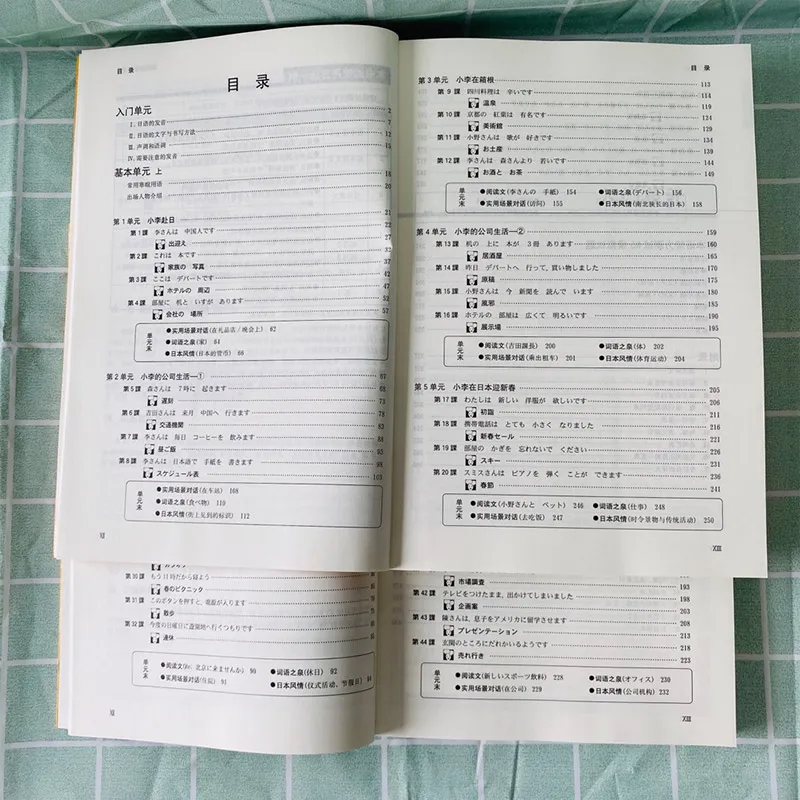 目 录
目 录
入门单元 3
Ⅰ. 日语的发音 7
Ⅱ. 日语的文字与书写方法 12
Ⅲ. 声调和语调 15
Ⅳ. 需要注意的发音
基本单元 上 18
常用寒暄用语 20
出场人物介绍
第1单元 小李赴日 21
第1課 李さんは 中国人です 22
出迎え 27
第2課 これは 本です
家族の 写真 37
第3課 ここは デパートです 42
ホテルの 周辺 47
第4課 部屋に 机と いすが あります 52
会社の 場所 57
单元末
●实用场景对话(在礼品店/晚会上) 62
●词语之泉(家) 64
●日本风情(日本的货币) 66
第2单元 小李的公司生活—① 67
第5課 森さんは 7時に 起きます 68
遅刻 73
第6課 吉田さんは 来月 中国へ 行きます 78
交通機関 83
第7課 李さんは 毎日 コーヒーを 飲みます 88
昼ご飯 93
第8課 李さんは 日本語で 手紙を 書きます 98
スケジュール表 103
单元末
●实用场景对话(在车站) 108
●词语之泉(食べ物) 110
●日本风情(街上见到的标识) 112
Ⅻ
目 录
第3单元 小李在箱根 113
第9課 四川料理は 辛いです 114
温泉 119
第10課 京都の 紅葉は 有名です 124
美術館 129
第11課 小野さんは 歌が 好きです 134
お土産 139
第12課 李さんは 森さんより 若いです 144
お酒と お茶 149
单元末
●阅读文(李さんの 手紙) 154 ●词语之泉(デパート) 156
●实用场景对话(访问) 155 ●日本风情(南北狭长的日本) 158
第4单元 小李的公司生活—② 159
第13課 机の 上に 本が 3冊 あります 160
居酒屋 165
第14課 昨日 デパートへ 行って,買い物しました 170
原稿 175
第15課 小野さんは 今 新聞を 読んで います 180
風邪 185
第16課 ホテルの 部屋は 広くて 明るいです 190
展示場 195
单元末
●阅读文(吉田課長) 200 ●词语之泉(体) 202
●实用场景对话(乘出租车) 201 ●日本风情(体育运动) 204
第5单元 小李在日本迎新春 205
第17課 わたしは 新しい 洋服が 欲しいです 206
初詣 211
第18課 携帯電話は とても 小さく なりました 216
新春セール 221
第19課 部屋の かぎを 忘れないで ください 226
スキー 231
第20課 スミスさんは ピアノを 弾く ことが できます 236
春節 241
单元末
●阅读文(小野さんと ペット) 246 ●词语之泉(仕事) 248
●实用场景对话(去吃饭) 247 ●日本风情(时令景物与传统活动) 250
XIII
第30課 もう11時だから寝よう
春のピクニック
第31課 このボタンを押すと,電源が入ります
散歩
第32課 今度の日曜日に遊園地へ行くつもりです
連休
单元末
●阅读文(北京に来ませんか) 90 ●词语之泉(休日) 92
●实用场景对话(住院) 91 ●日本风情(仪式活动、节假日) 94
Ⅻ
市場調査 193
第42課 テレビをつけたまま,出かけてしまいました 198
企画案 203
第43課 陳さんは,息子をアメリカに留学させます 208
プレゼンテーション 213
第44課 玄関のところにだれかいるようです 218
売れ行き 223
单元末
●阅读文(新しいスポーツ飲料) 228 ●词语之泉(オフィス) 230
●实用场景对话(在公司) 229 ●日本风情(公司机构) 232
XIII